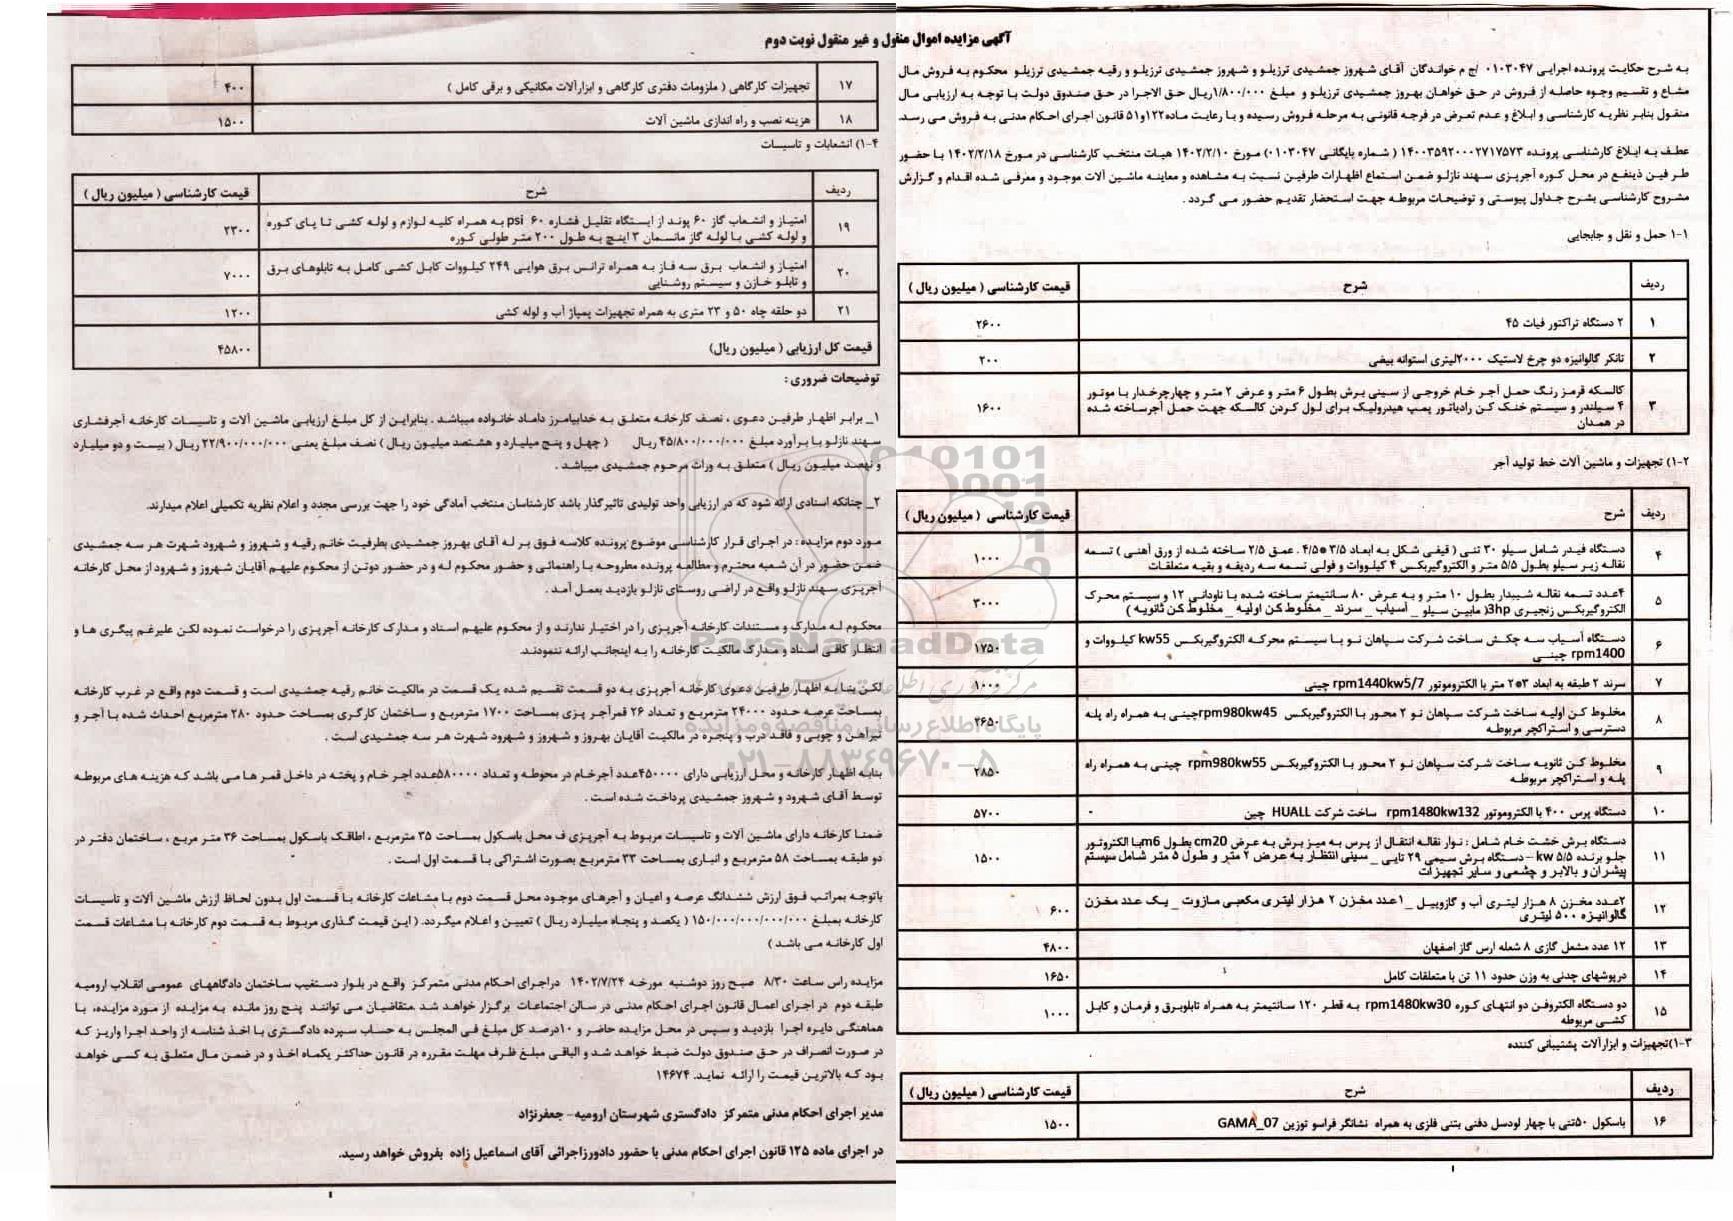 آگهی مزایده اموال منقول و غیر منقول نوبت دوم
به شرح حکایت پرونده اجرایی ۰۱۰۳۰۴۷ /ج م خواندگان آقای شهروز جمشیدی ترزیلو و شهروز جمشیدی ترزیلو و رقیه جمشیدی ترزیلو محکوم به فروش مال
مشاع و تقسیم وجوه حاصله از فروش در حق خواهان بهروز جمشیدی ترزیلو و مبلغ ۱/۸۰۰/۰۰۰ریال حق الاجرا در حق صندوق دولت با توجه به ارزیابی مال
منقول بنابر نظریه کارشناسی و ابلاغ و عدم تعرض در فرجه قانونی به مرحله فروش رسیده و با رعایت ماده۱۲۲و۵۱ قانون اجرای احکام مدنی به فروش می رسد.
عطف به ابلاغ کارشناسی پرونده ۱۴۰۰۳۵۹۲۰۰۰۲۷۱۷۵۷۳ ( شماره بایگانی ۰۱۰۳۰۴۷) مورخ ۱۴۰۲/۲/۱۰ هیات منتخب کارشناسی در مورخ ۱۴۰۲/۲/۱۸ با حضور
طرفین ذینفع در محل کوره آجرپزی سهند نازلو ضمن استماع اظهارات طرفین نسبت به مشاهده و معاینه ماشین آلات موجود و معرفی شده اقدام و گزارش
مشروح کارشناسی بشرح جداول پیوستی و توضیحات مربوطه جهت استحضار تقدیم حضور می گردد .
۱-۱ حمل و نقل و جابجایی
ردیف شرح قیمت کارشناسی ( میلیون ریال )
۱ ۲ دستگاه تراکتور فیات ۴۵ ۲۶۰۰
۲ تانکر گالوانیزه دو چرخ لاستیک ۲۰۰۰لیتری استوانه بیضی ۲۰۰
۳ کالسکه قرمز رنگ حمل آجر خام خروجی از سینی برش بطول ۶ متر و عرض ۲ متر و چهارچرخدار با موتور
۴ سیلندر و سیستم خنک کن رادیاتور پمپ هیدرولیک برای لول کردن کالسکه جهت حمل آجرساخته شده ۱۶۰۰
در همدان
۱-۲) تجهیزات و ماشین آلات خط تولید آجر
ردیف شرح قیمت کارشناسی ( میلیون ریال )
۴ دستگاه فیدر شامل سیلو ۳۰ تنی ( قیفی شکل به ابعاد ۳/۵*۴/۵ . عمق ۲/۵ ساخته شده از ورق آهنی ) تسمه ۱۰۰۰
نقاله زیر سیلو بطول ۵/۵ متر و الکتروگیربکس ۴ کیلووات و فولی تسمه سه ردیفه و بقیه متعلقات
۵ ۴عدد تسمه نقاله شیبدار بطول ۱۰ متر و به عرض ۸۰ سانتیمتر ساخته شده با ناودانی ۱۲ و سیستم محرک ۳۰۰۰
الکتروگیربکس زنجیری 3hp( مابین سیلو _ آسیاب _ سرند _ مخلوط کن اولیه _ مخلوط کن ثانویه )
۶ دستگاه آسیاب سه چکش ساخت شرکت سپاهان نو با سیستم محرکه الکتروگیربکس kw55 کیلووات و ۱۷۵۰
rpm1400 چینی
۷ سرند ۲ طبقه به ابعاد ۳*۲ متر با الکتروموتور rpm1440kw5/7 چینی ۱۰۰۰
۸ مخلوط کن اولیه ساخت شرکت سپاهان نو ۲ محور با الکتروگیربکس rpm980kw45چینی به همراه راه پله ۲۶۵۰
دسترسی و استراکچر مربوطه
۹ مخلوط کن ثانویه ساخت شرکت سپاهان نو ۲ محور با الکتروگیربکس rpm980kw55 چینی به همراه راه ۲۸۵۰
پله و استراکچر مربوطه
۱۰ دستگاه پرس ۴۰۰ با الکتروموتور rpm1480kw132 ساخت شرکت HUALL چین ۵۷۰۰
۱۱ دستگاه برش خشت خام شامل : نوار نقاله انتقال از پرس به میز برش به عرض cm20 بطول m6با الکتروتور
جلو برنده kw ۵/۵ – دستگاه برش سیمی ۲۹ تایی _ سینی انتظار به عرض ۲ متر و طول ۵ متر شامل سیستم ۱۵۰۰
پیشران و بالابر و چشمی و سایر تجهیزات
۱۲ ۲عدد مخزن ۸ هزار لیتری آب و گازوییل _ ۱عدد مخزن ۲ هزار لیتری مکعبی مازوت _ یک عدد مخزن ۶۰۰
گالوانیزه ۵۰۰ لیتری
۱۳ ۱۲ عدد مشعل گازی ۸ شعله ارس گاز اصفهان ۴۸۰۰
۱۴ درپوشهای چدنی به وزن حدود ۱۱ تن با متعلقات کامل ۱۶۵۰
۱۵ دو دستگاه الکتروفن دو انتهای کوره rpm1480kw30 به قطر ۱۲۰ سانتیمتر به همراه تابلوبرق و فرمان و کابل ۱۰۰۰
کشی مربوطه
۱-۳)تجهیزات و ابزارآلات پشتیبانی کننده
ردیف شرح قیمت کارشناسی ( میلیون ریال )
۱۶ باسکول ۵۰تنی با چهار لودسل دفنی بتنی فلزی به همراه نشانگر فراسو توزین GAMA_07 ۱۵۰۰
۱۷ تجهیزات کارگاهی ( ملزومات دفتری کارگاهی و ابزارآلات مکانیکی و برقی کامل ) ۴۰۰
۱۸ هزینه نصب و راه اندازی ماشین آلات ۱۵۰۰
۱-۴) انشعابات و تاسیسات
ردیف شرح قیمت کارشناسی ( میلیون ریال )
۱۹ امتیاز و انشعاب گاز ۶۰ پوند از ایستگاه تقلیل فشاره ۶۰ psi به همراه کلیه لوازم و لوله کشی تا پای کوره ۲۳۰۰
و لوله کشی با لوله گاز مانسمان ۳ اینچ به طول ۲۰۰ متر طولی کوره
۲۰ امتیاز و انشعاب برق سه فاز به همراه ترانس برق هوایی ۲۴۹ کیلووات کابل کشی کامل به تابلوهای برق ۷۰۰۰
و تابلو خازن و سیستم روشنایی
۲۱ دو حلقه چاه ۵۰ و ۲۳ متری به همراه تجهیزات پمپاژ آب و لوله کشی ۱۲۰۰
قیمت کل ارزیابی ( میلیون ریال) ۴۵۸۰۰
توضیحات ضروری :
۱_ برابر اظهار طرفین دعوی ، نصف کارخانه متعلق به خدابیامرز داماد خانواده میباشد . بنابراین از کل مبلغ ارزیابی ماشین آلات و تاسیسات کارخانه آجرفشاری
سهند نازلو با برآورد مبلغ ۴۵/۸۰۰/۰۰۰/۰۰۰ ریال ( چهل و پنج میلیارد و هشتصد میلیون ریال ) نصف مبلغ یعنی ۲۲/۹۰۰/۰۰۰/۰۰۰ ریال ( بیست و دو میلیارد
و نهصد میلیون ریال ) متعلق به وراث مرحوم جمشیدی میباشد .
۲_ چنانکه اسنادی ارائه شود که در ارزیابی واحد تولیدی تاثیرگذار باشد کارشناسان منتخب آمادگی خود را جهت بررسی مجدد و اعلام نظریه تکمیلی اعلام میدارند.
مورد دوم مزایده : در اجرای قرار کارشناسی موضوع پرونده کلاسه فوق بر له آقای بهروز جمشیدی بطرفیت خانم رقیه و شهروز و شهرود شهرت هر سه جمشیدی
ضمن حضور در آن شعبه محترم و مطالعه پرونده مطروحه با راهنمائی و حضور محکوم له و در حضور دوتن از محکوم علیهم آقایان شهروز و شهرود از محل کارخانه
آجرپزی سهند نازلو واقع در اراضی روستای نازلو بازدید بعمل آمد .
محکوم له مدارک و مستندات کارخانه آجرپزی را در اختیار ندارند و از محکوم علیهم اسناد و مدارک کارخانه آجرپزی را درخواست نموده لکن علیرغم پیگری ها و
انتظار کافی اسناد و مدارک مالکیت کارخانه را به اینجانب ارائه ننمودند.
لکن بنا به اظهار طرفین دعوی کارخانه آجرپزی به دو قسمت تقسیم شده یک قسمت در مالکیت خانم رقیه جمشیدی است و قسمت دوم واقع در غرب کارخانه
بمساحت عرصه حدود ۲۴۰۰۰ مترمربع و تعداد ۲۶ قمرآجر پزی بمساحت ۱۷۰۰ مترمربع و ساختمان کارگری بمساحت حدود ۲۸۰ مترمربع احداث شده با آجر و
تیرآهن و چوبی و فاقد درب و پنجره در مالکیت آقایان بهروز و شهروز و شهرود شهرت هر سه جمشیدی است .
بنابه اظهار کارخانه و محل ارزیابی دارای ۴۵۰۰۰۰عدد آجرخام در محوطه و تعداد ۵۸۰۰۰۰عدد اجر خام و پخته در داخل قمر ها می باشد که هزینه های مربوطه
توسط آقای شهرود و شهروز جمشیدی پرداخت شده است .
ضمنا کارخانه دارای ماشین آلات و تاسیسات مربوط به آجرپزی ف محل باسکول بمساحت ۳۵ مترمربع ، اطاقک باسکول بمساحت ۳۶ متر مربع ، ساختمان دفتر در
دو طبقه بمساحت ۵۸ مترمربع و انباری بمساحت ۳۳ مترمربع بصورت اشتراکی با قسمت اول است .
باتوجه بمراتب فوق ارزش ششدانگ عرصه و اعیان و آجرهای موجود محل قسمت دوم با مشاعات کارخانه با قسمت اول بدون لحاظ ارزش ماشین آلات و تاسیسات
کارخانه بمبلغ ۱۵۰/۰۰۰/۰۰۰/۰۰۰ ( یکصد و پنجاه میلیارد ریال ) تعیین و اعلام میگردد. ( این قیمت گذاری مربوط به قسمت دوم کارخانه با مشاعات قسمت
اول کارخانه می باشد )
مزایده راس ساعت ۸/۳۰ صبح روز دوشنبه مورخه ۱۴۰۲/۷/۲۴ دراجرای احکام مدنی متمرکز واقع در بلوار دستغیب ساختمان دادگاههای عمومی انقلاب ارومیه
طبقه دوم در اجرای اعمال قانون اجرای احکام مدنی در سالن اجتماعات برگزار خواهد شد .متقاضیان می توانند پنج روز مانده به مزایده از مورد مزایده، با
هماهنگی دایره اجرا بازدید و سپس در محل مزایده حاضر و ۱۰درصد کل مبلغ فی المجلس به حساب سپرده دادگستری با اخذ شناسه از واحد اجرا واریز که
در صورت انصراف در حق صندوق دولت ضبط خواهد شد و الباقی مبلغ ظرف مهلت مقرره در قانون حداکثر یکماه اخذ و در ضمن مال متعلق به کسی خواهد
بود که بالاترین قیمت را ارائه نماید. ۱۴۶۷۴
مدیر اجرای احکام مدنی متمرکز دادگستری شهرستان ارومیه– جعفرنژاد
در اجرای ماده ۱۲۵ قانون اجرای احکام مدنی با حضور دادورزاجرائی آقای اسماعیل زاده بفروش خواهد رسید.
ParsNamadData
پایگاه اطلاع رسانی مناقصه و مزایده
۰۲۱-۸۸۳۴۹۶۷۰-۵